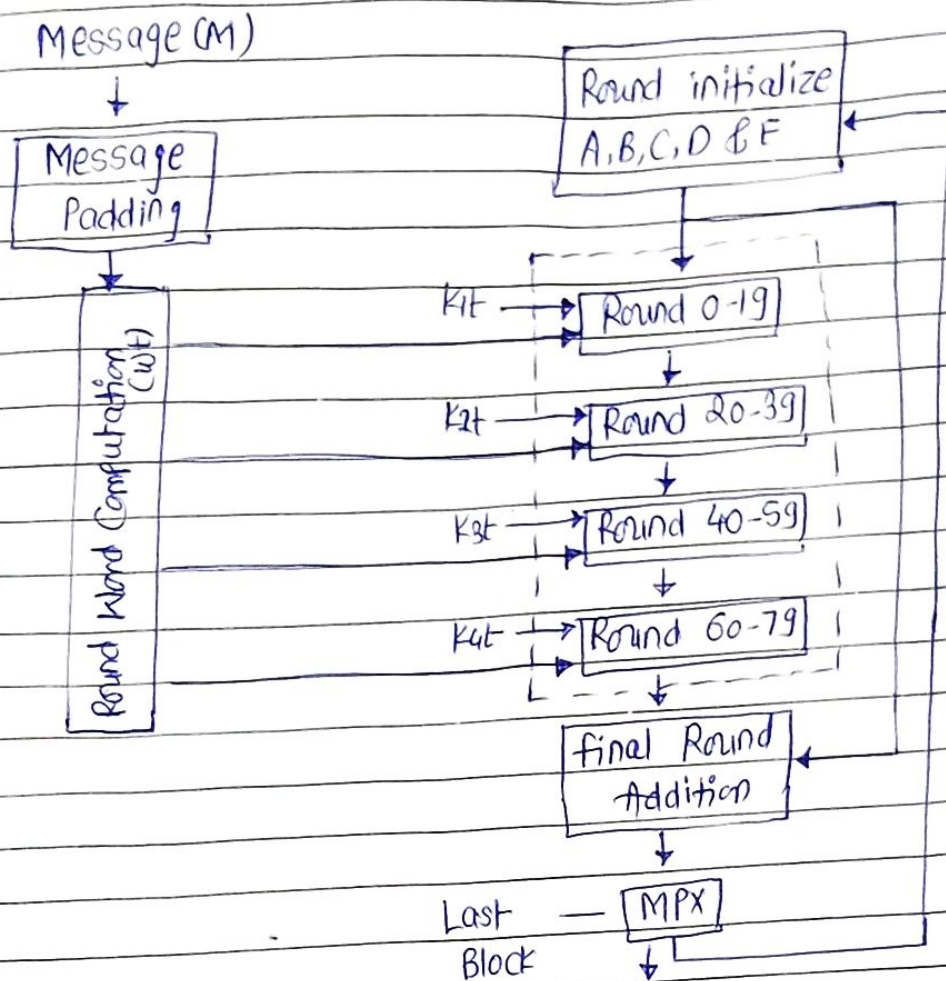 Message (M)
Message
Padding
Round Word Computation
(Wt)
Round initialize
A, B, C, D & E
K1t
Round 0-19
K2t
Round 20-39
K3t
Round 40-59
K4t
Round 60-79
final Round
Addition
Last
Block
MPX